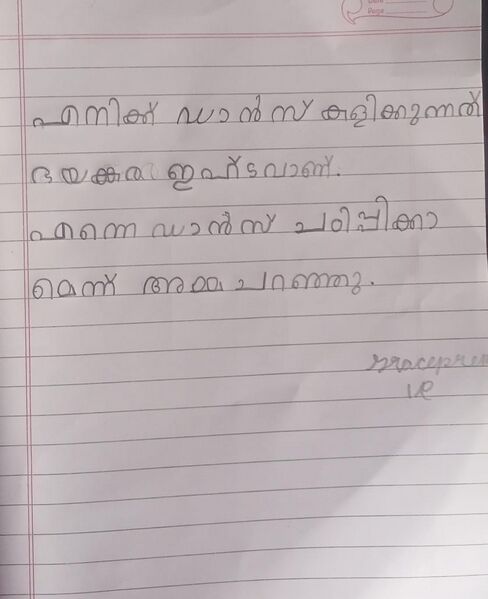 Date
Page
എനിക്ക് ഡാൻസ് കളിക്കുന്നത്
ഭയങ്കര ഇഷ്ടമാണ്.
എന്നെ ഡാൻസ് പഠിപ്പിക്കാ
മെന്ന് അമ്മ പറഞ്ഞു.